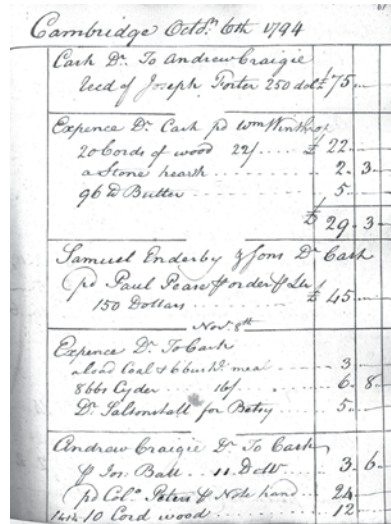 Cambridge Octo.r 6th 1794
Cash Dr. To Andrew Craigie
Recd of Joseph Foster 250 dol £ 75
Expence Dr. Cash pd Wm Winthrop
20 Cords of wood 22/ £ 22
a Stone hearth 2. 3
96 lb Butter 5
£ 29. 3
Samuel Enderby & Sons Dr Cash
pd Paul Pease order
150 Dollars £ 45
Nov. 8th
Expence Dr. To Cash
a load Coal & 6 bush. meal 3
8 bbs Cyder 16/ 6. 8
Dr. Saltonstall for Betsy 5
Andrew Craigie Dr. To Cash
Jos. Ball 3. 6
pd Col. Peters Note hand 24
10 Cord wood 12